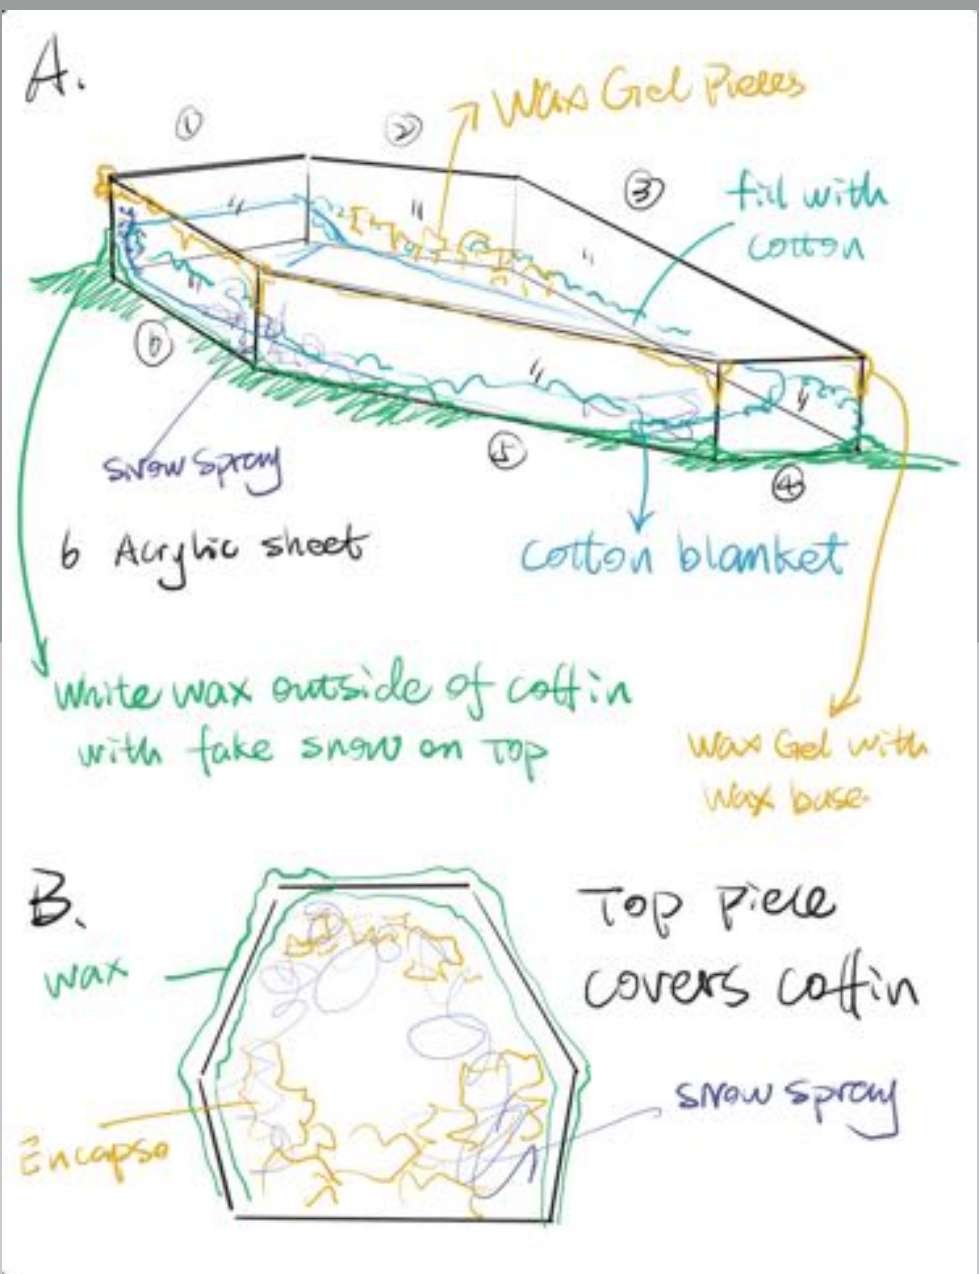 A.
①
②
Wax Gel Pieces
③
fill with
cotton
⑥
⑤
④
snow spray
6 Acrylic sheet
cotton blanket
white wax outside of coffin
with fake snow on Top
Wax Gel with
wax base
B.
Top piece
covers coffin
wax
snow spray
Encapso